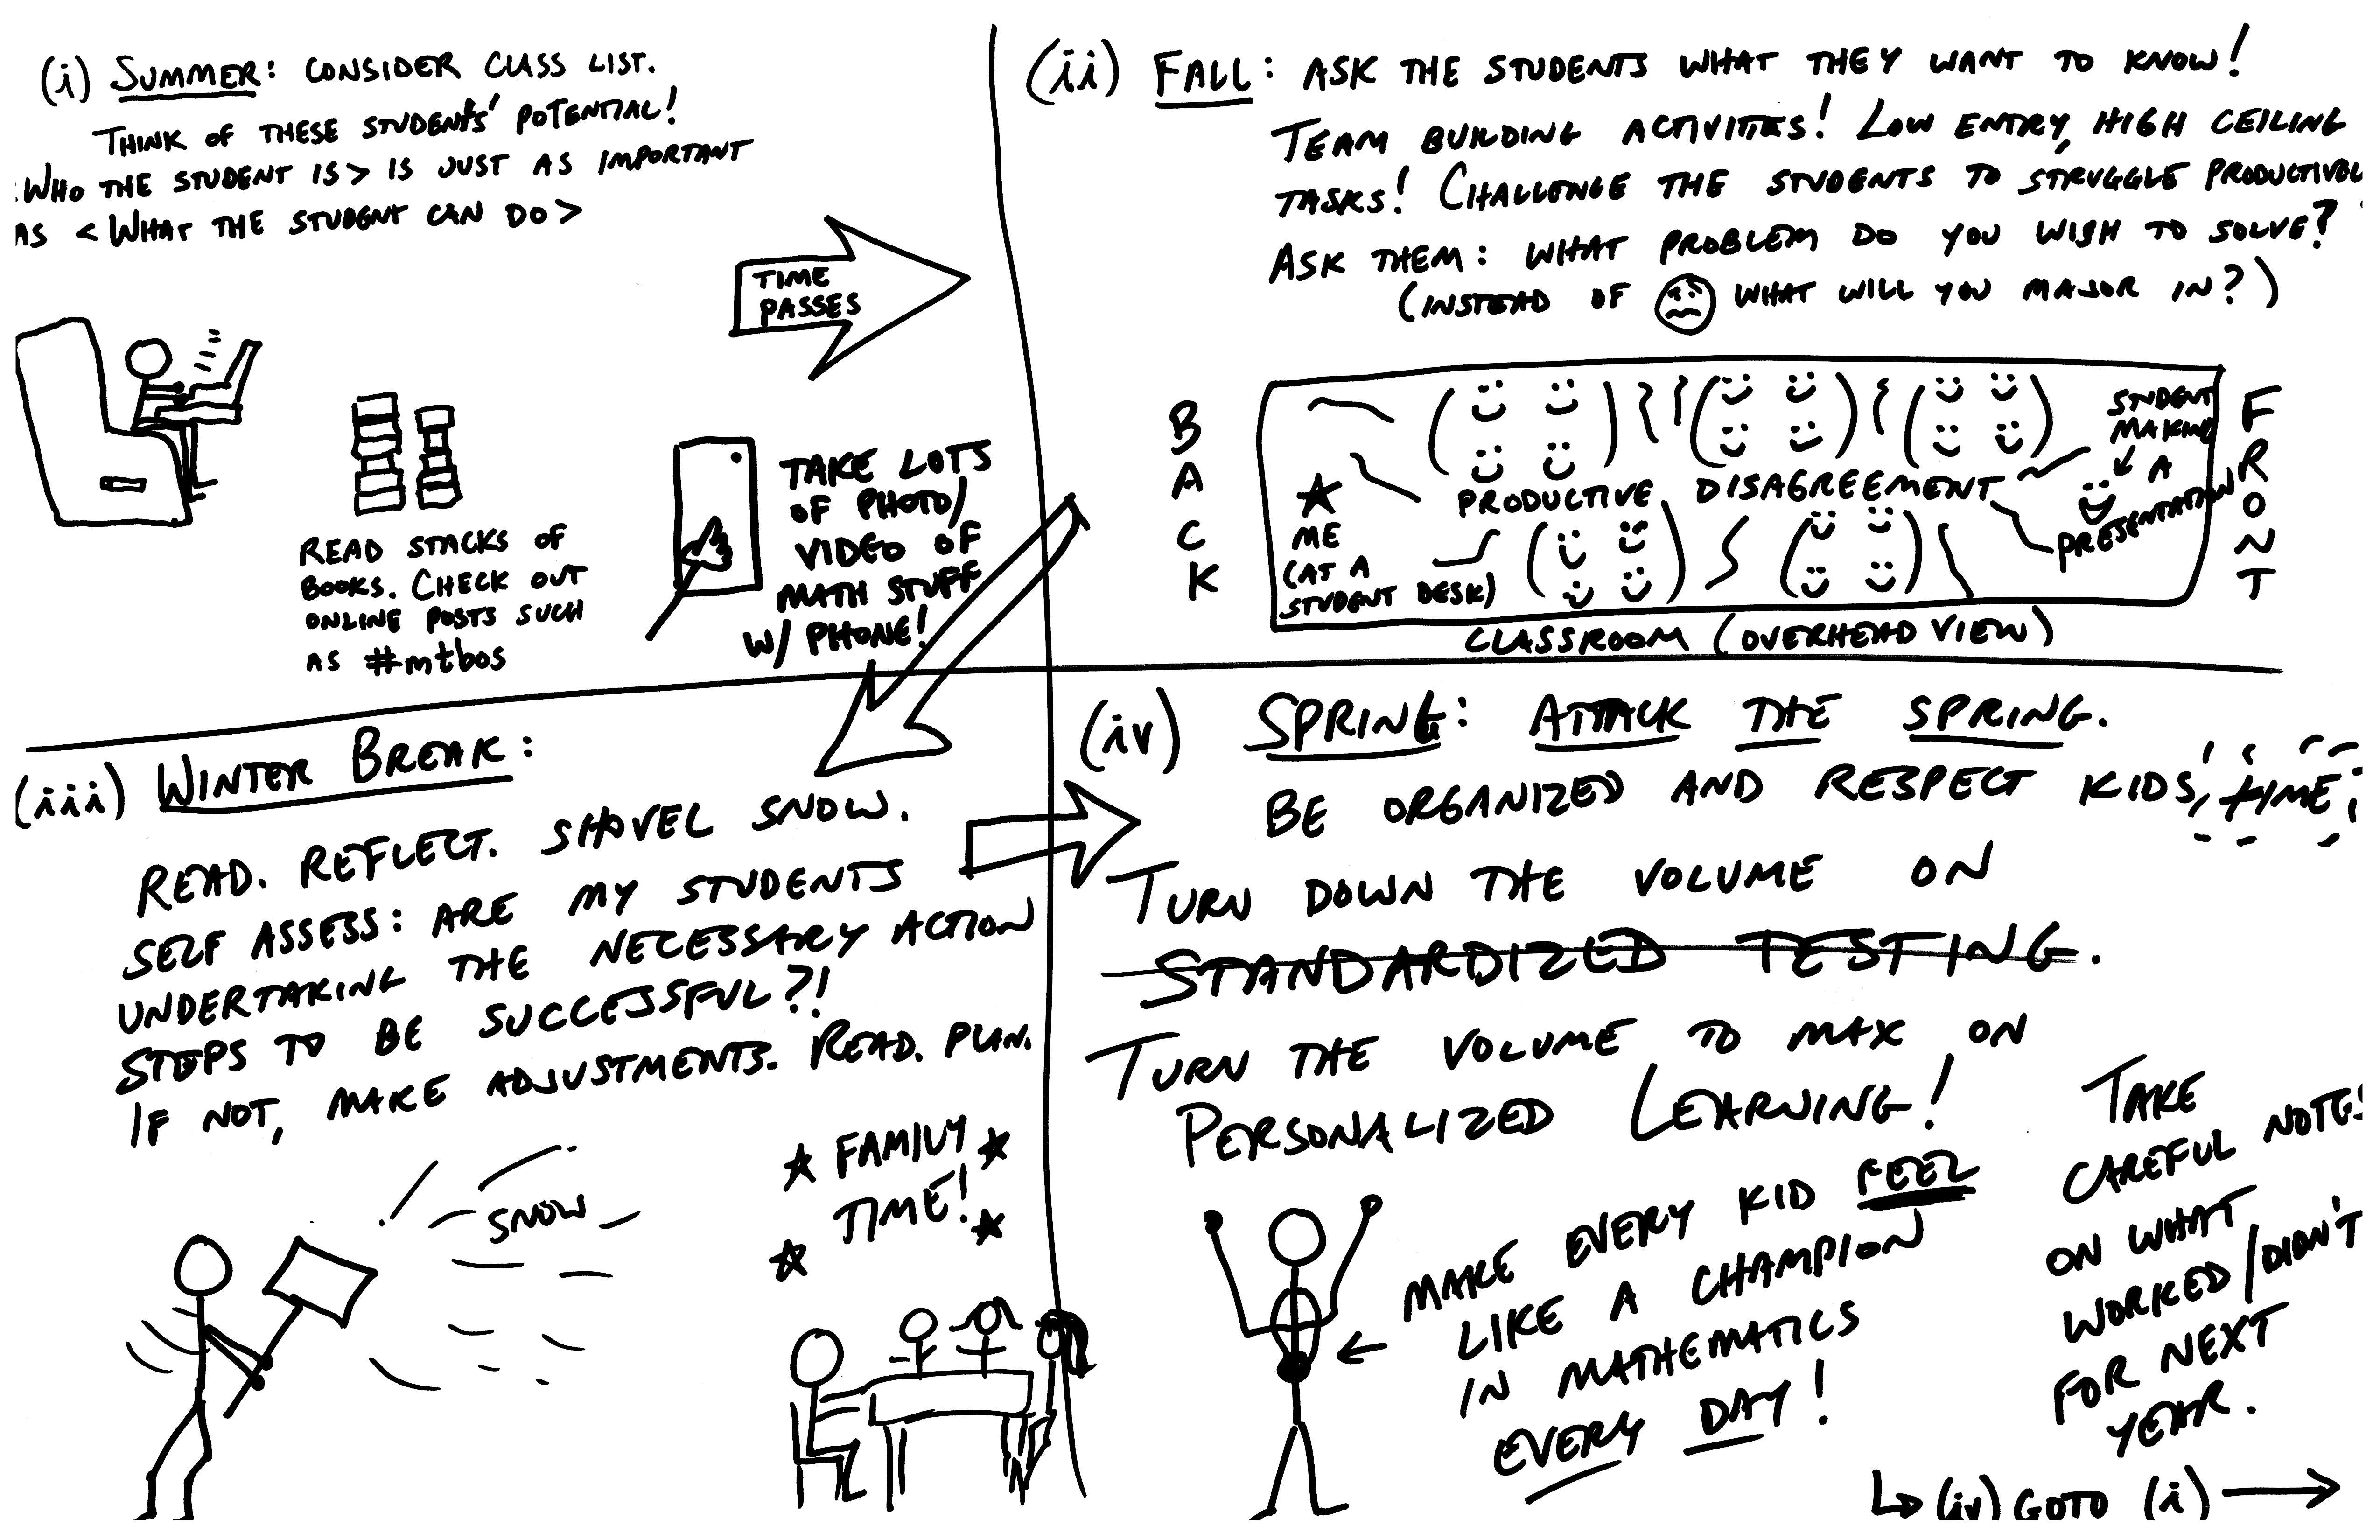 (i) SUMMER: CONSIDER CLASS LIST.
THINK OF THESE STUDENTS' POTENTIAL!
WHO THE STUDENT IS> IS JUST AS IMPORTANT
AS <WHAT THE STUDENT CAN DO>
TIME
PASSES
READ STACKS OF
BOOKS. CHECK OUT
ONLINE POSTS SUCH
AS #mtbos
TAKE LOTS
OF PHOTO/
VIDEO OF
MATH STUFF
W/ PHONE!
(ii) FALL: ASK THE STUDENTS WHAT THEY WANT TO KNOW!
TEAM BUILDING ACTIVITIES! LOW ENTRY, HIGH CEILING
TASKS! CHALLENGE THE STUDENTS TO STRUGGLE
ASK THEM: WHAT PROBLEM DO YOU WISH TO SOLVE?
(INSTEAD OF WHAT WILL YOU MAJOR IN?)
BACK
ME
(AT A
STUDENT DESK)
PRODUCTIVE DISAGREEMENT
STUDENT
MAKING
A
PRESENTATION
FRONT
CLASSROOM (OVERHEAD VIEW)
(iii) WINTER BREAK:
READ. REFLECT. SHOVEL SNOW.
SELF ASSESS: ARE MY STUDENTS
UNDERTAKING THE NECESSARY ACTION
STEPS TO BE SUCCESSFUL?!
IF NOT, MAKE ADJUSTMENTS. READ. PLAN.
SNOW
FAMILY
TIME!
(iv) SPRING: ATTACK THE SPRING.
BE ORGANIZED AND RESPECT KIDS' TIME
TURN DOWN THE VOLUME ON
STANDARDIZED TESTING.
TURN THE VOLUME TO MAX ON
PERSONALIZED LEARNING!
MAKE EVERY KID FEEL
LIKE A CHAMPION
IN MATHEMATICS
EVERY DAY!
TAKE
CAREFUL NOTES
ON WHAT
WORKED/DIDN'T
FOR NEXT
YEAR.
(iv) GOTO (i)